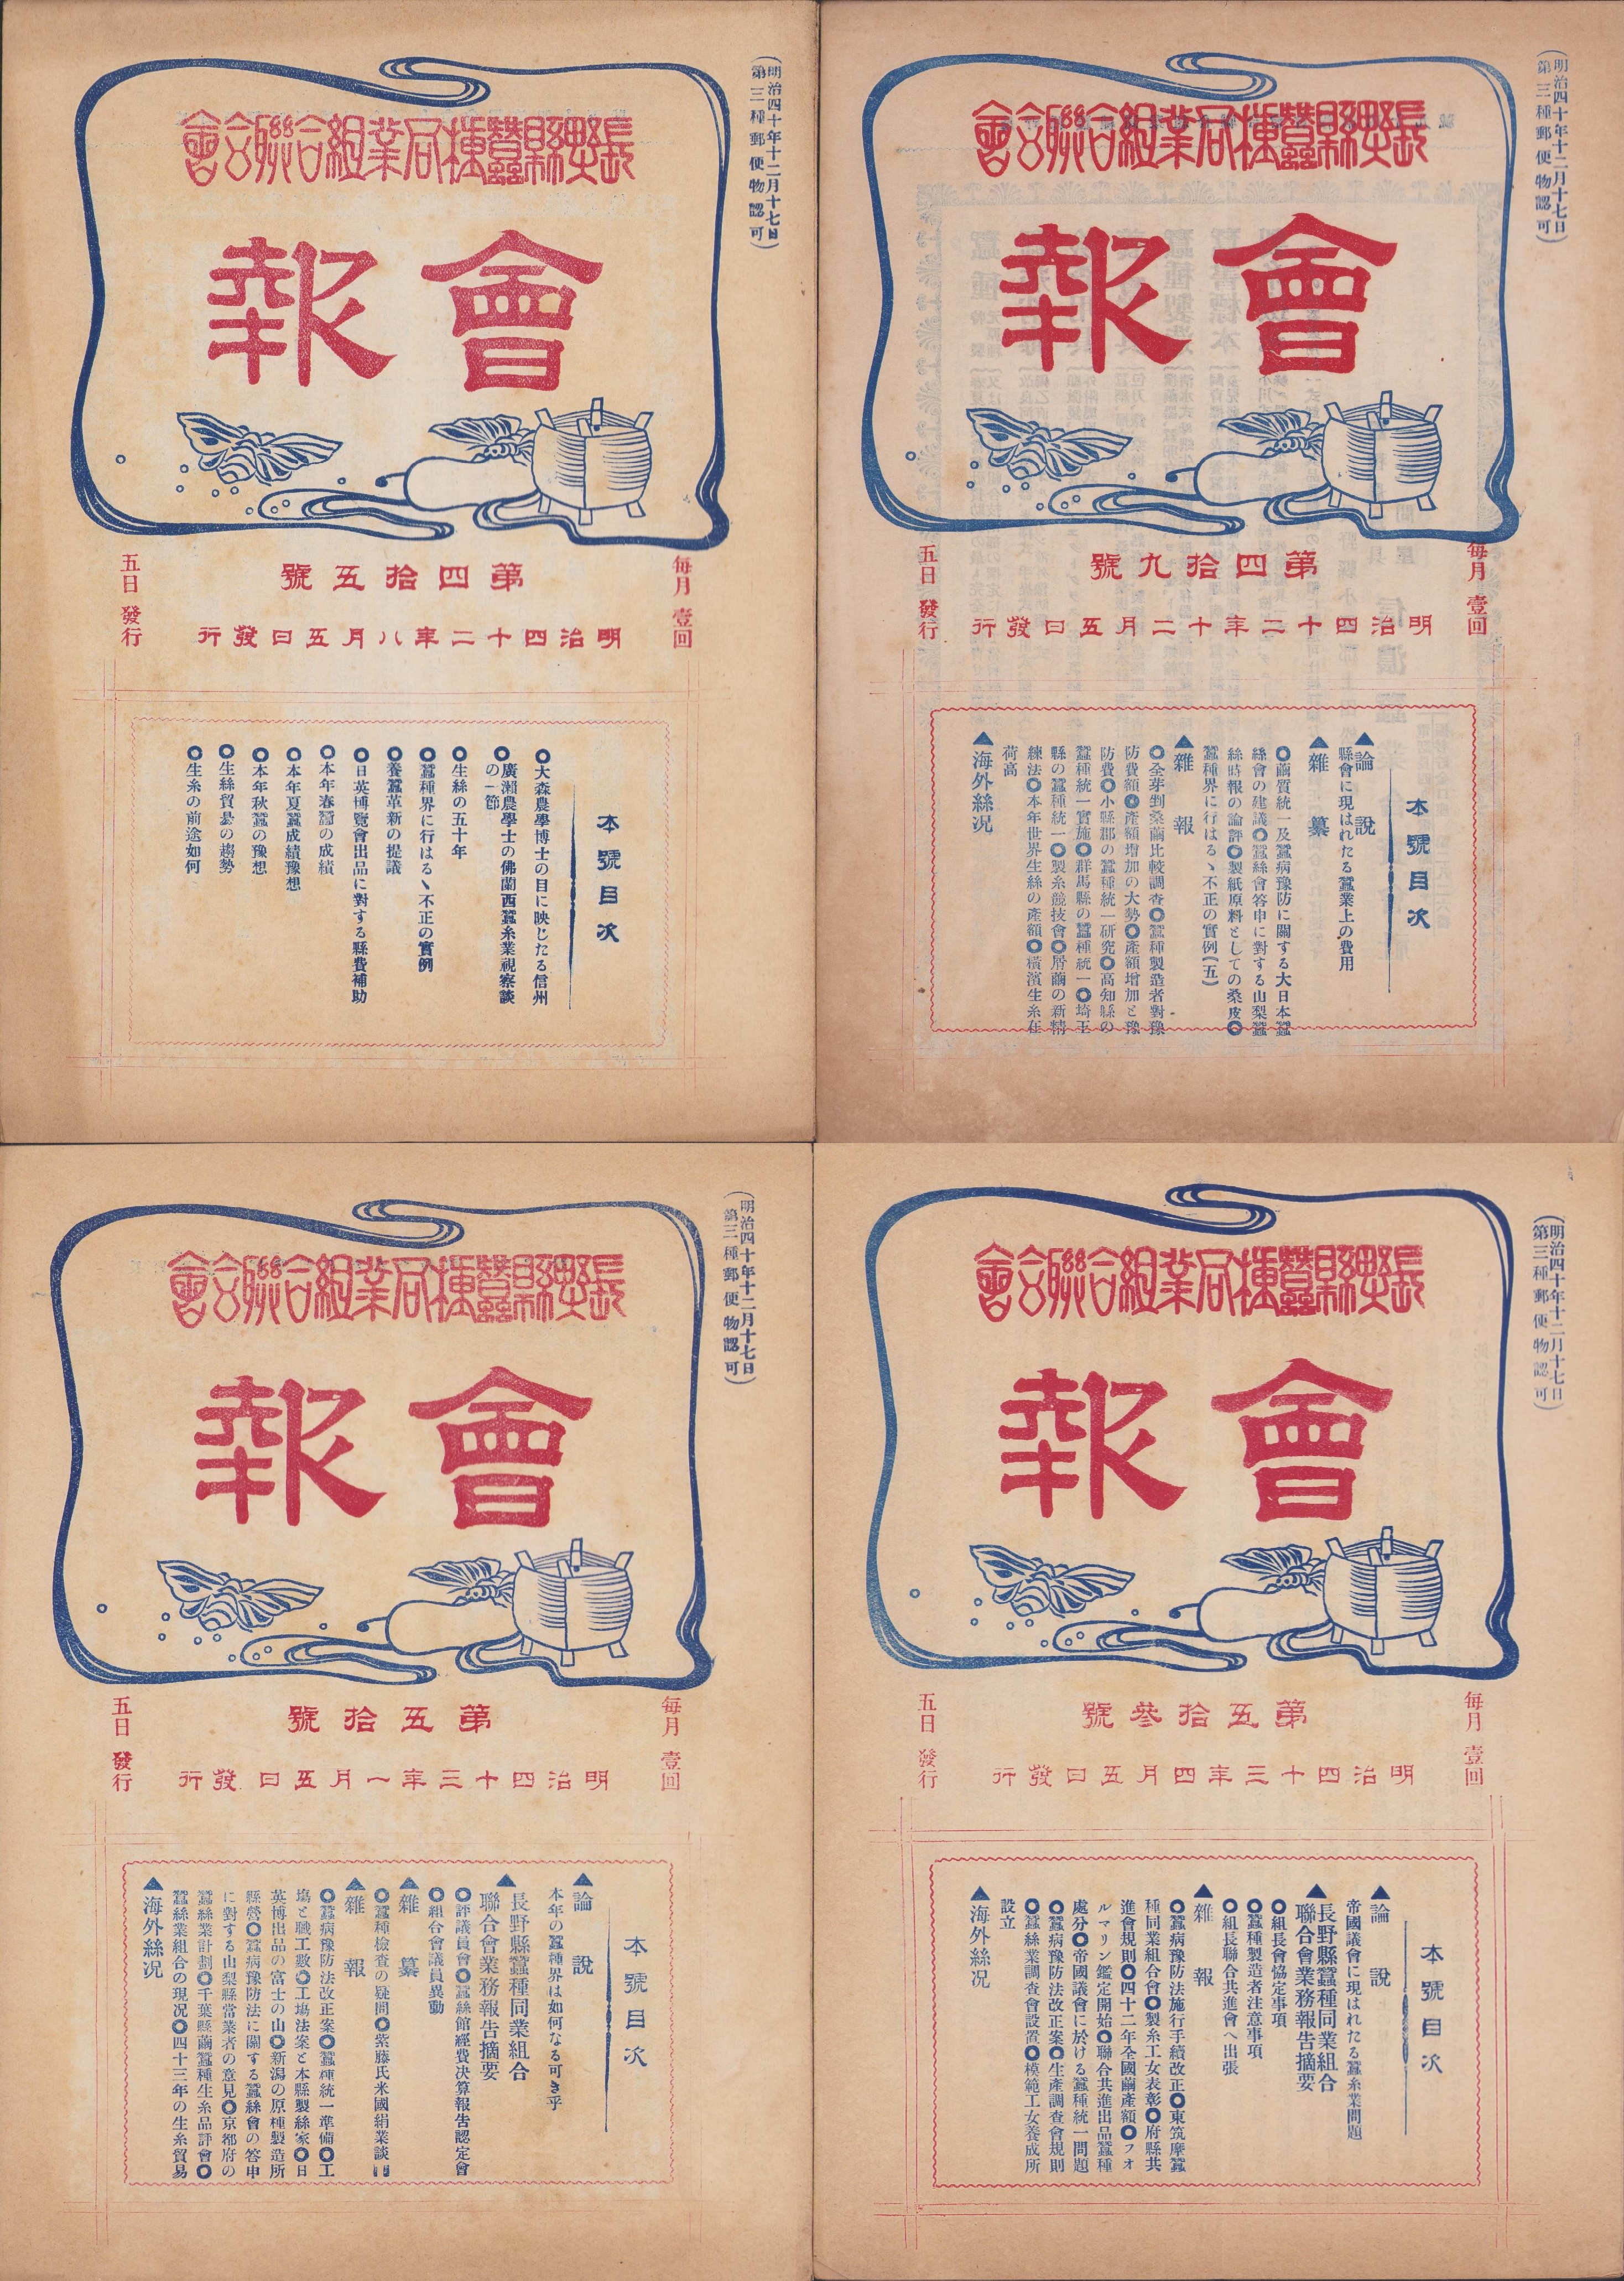 (明治四十年十二月十七日
第三種郵便物認可)
長野縣蠶種同業組合聯合會
會報
每月壹回
五日發行
第四拾五號
明治四十二年八月五日發行
本號目次
◎大森農學博士の目に映じたる信州
◎廣瀨農學士の佛蘭西蠶糸業視察談
の一節
◎生絲の五十年
◎蠶種界に行はるヽ不正の實例
◎養蠶革新の提議
◎日英博覽會出品に對する縣費補助
◎本年春蠶の成績
◎本年夏蠶成績豫想
◎本年秋蠶の豫想
◎生絲貿易の趨勢
◎生糸の前途如何
(明治四十年十二月十七日
第三種郵便物認可)
長野縣蠶種同業組合聯合會
會報
每月壹回
五日發行
第四拾九號
明治四十二年十二月五日發行
本號目次
▲論說
縣會に現はれたる蠶業上の費用
▲雜纂
◎繭質統一及蠶病豫防に關する大日本蠶
絲會の建議◎蠶絲會答申に對する山梨蠶
絲時報の論評◎製紙原料としての桑皮◎
蠶種界に行はるヽ不正の實例(五)
▲雜報
◎全芽剉桑繭比較調査◎蠶種製造者對豫
防費額◎產額增加の大勢◎產額增加と豫
防費◎小縣郡の蠶種統一研究◎高知縣の
蠶種統一實施◎群馬縣の蠶種統一◎埼玉
縣の蠶種統一◎製糸競技會◎屑繭の新精
練法◎本年世界生絲の產額◎橫濱生糸在
荷高
▲海外絲況
(明治四十年十二月十七日
第三種郵便物認可)
長野縣蠶種同業組合聯合會
會報
每月壹回
五日發行
第五拾號
明治四十三年一月五日發行
本號目次
▲論說
本年の蠶種界は如何なる可き乎
▲長野縣蠶種同業組合
聯合會業務報告摘要
◎評議員會◎蠶絲館經費決算報告認定會
◎組合會議員異動
▲雜纂
◎蠶種檢査の疑問◎紫藤氏米國絹業談
▲雜報
◎蠶病豫防法改正案◎蠶種統一準備◎工
塲と職工數◎工塲法案と本縣製絲家◎日
英博出品の富士の山◎新潟の原種製造所
縣營◎蠶病豫防法に關する蠶絲會の答申
に對する山梨縣當業者の意見◎京都府の
蠶絲業計劃◎千葉縣繭蠶種生糸品評會◎
蠶絲業組合の現況◎四十三年の生糸貿易
▲海外絲況
(明治四十年十二月十七日
第三種郵便物認可)
長野縣蠶種同業組合聯合會
會報
每月壹回
五日發行
第五拾參號
明治四十三年四月五日發行
本號目次
▲論說
帝國議會に現はれたる蠶糸業問題
▲長野縣蠶種同業組合
聯合會業務報告摘要
◎組長會協定事項
◎蠶種製造者注意事項
◎組長聯合共進會へ出張
▲雜報
◎蠶病豫防法施行手續改正◎東筑摩蠶
種同業組合會◎製糸工女表彰◎府縣共
進會規則◎四十二年全國繭產額◎フオ
ルマリン鑑定開始◎聯合共進出品蠶種
處分◎帝國議會に於ける蠶種統一問題
◎蠶病豫防法改正案◎生產調査會規則
◎蠶絲業調査會設置◎模範工女養成所
設立
▲海外絲況